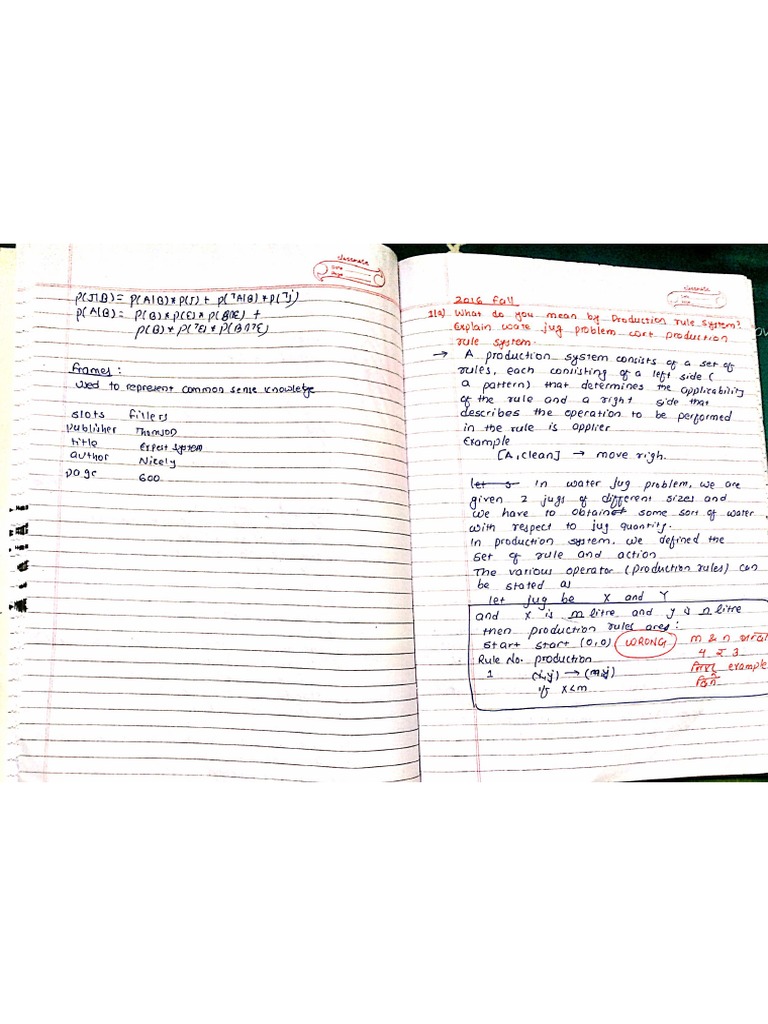 classmate
Date
Page
P(J|B) = P(A|B)*P(J) + P(¬A|B)*P(¬J)
P(A|B) = P(B)*P(E)*P(B∩E) +
P(B)*P(¬E)*P(B∩¬E)
Frames:
Used to represent common sense knowledge
slots fillers
Publisher Thomson
title Expert System
author Nicely
page 600
classmate
Date
Page
2016 Fall
1(a) What do you mean by Production rule system?
Explain wate jug problem wort production
rule system.
→ A production system consists of a set of
rules, each consisting of a left side (
a pattern) that determines the applicability
of the rule and a right side that
describes the operation to be performed
in the rule is applier
Example
[A, clean] → move righ.
In water jug problem, we are
given 2 jugs of different sizes and
we have to obtain some sort of water
with respect to jug quantity.
In production system, we defined the
set of rule and action
The various operator (production rules) can
be stated as
let jug be X and Y
and X is m litre and y is n litre
then production rules are:
start start (0,0) WRONG m & n
Rule No. production 4 र 3
1 (x,y) → (m,y) example
if x<m